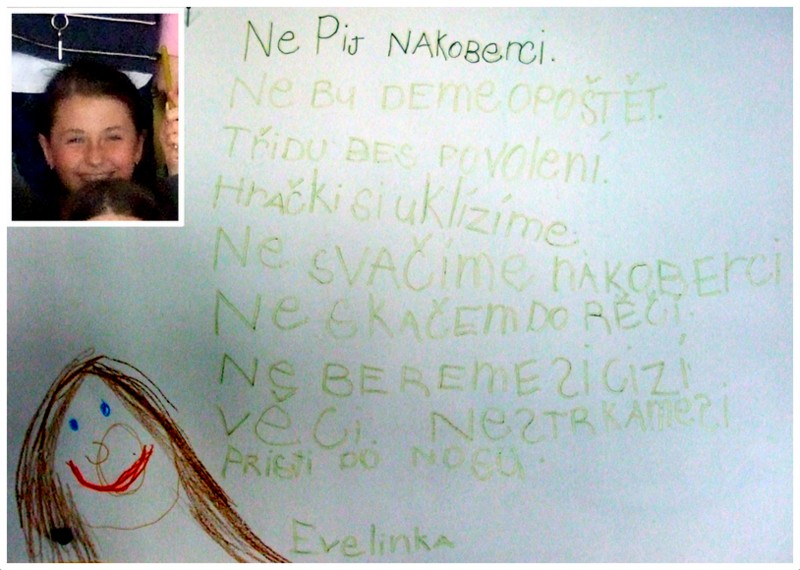 Ne Pij NAKOBerci.
Ne BU DEME OPOŠTĚT.
TŘIDU BES POVOLENÍ.
HRAČKi Si UKLÍZÍME
Ne SVAČÍME NAKOBERCI
Ne SKAČEM DO ŘĚČI.
NE BEREME SI CIZÍ
VĚCi. NESTRKAMESI
PRISTI DO NOSU.
EveLiNKA